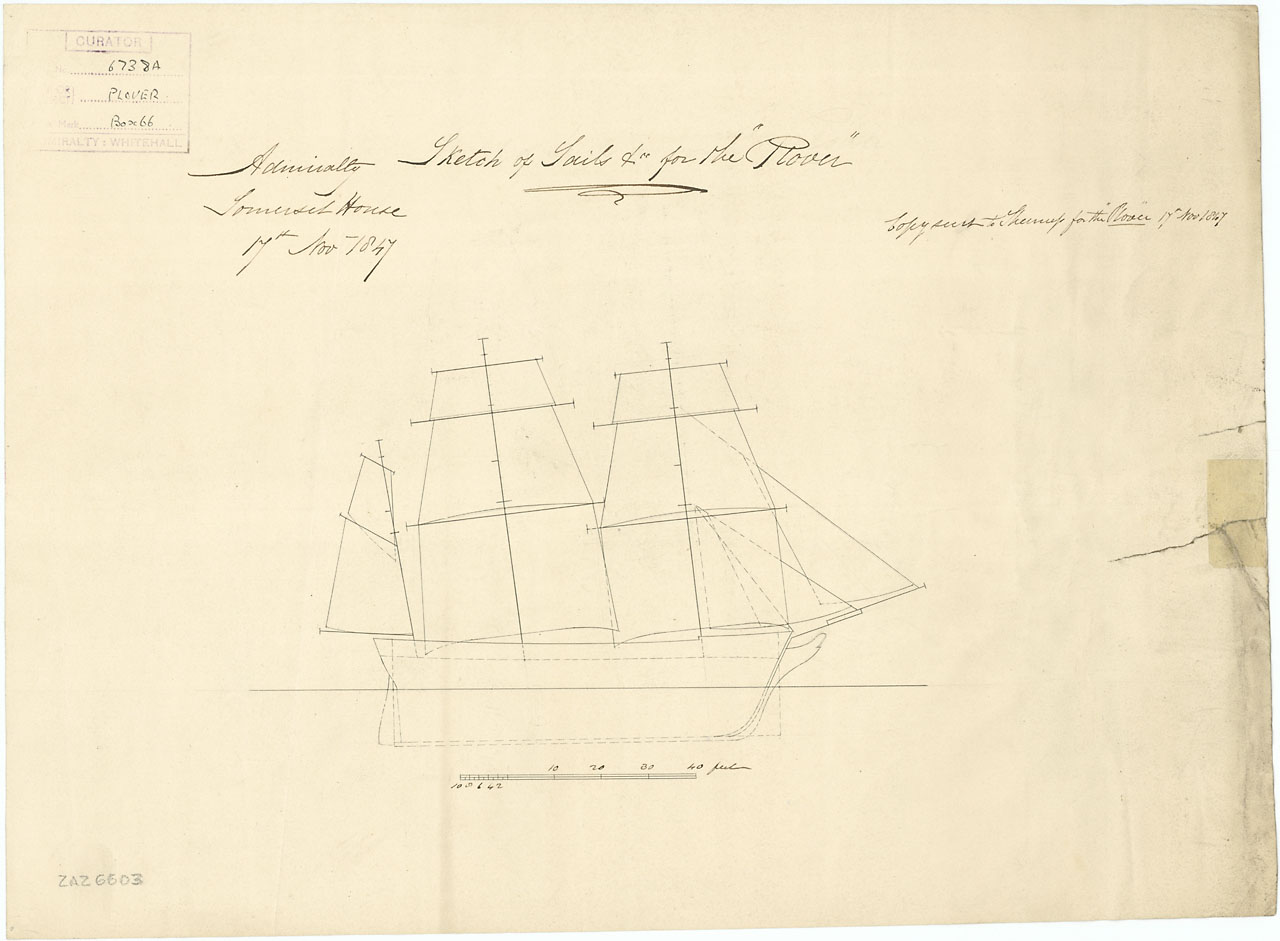 CURATOR
No. 6738A
PLOVER
Mark Box 66
ADMIRALTY: WHITEHALL
Sketch of Sails &ca for the "Plover"
Admiralty
Somerset House
17th Nov 1847
Copy sent to Sheerness for the "Plover" 17th Nov 1847
10 20 30 40 feet
10 8 6 4 2
ZAZ6603